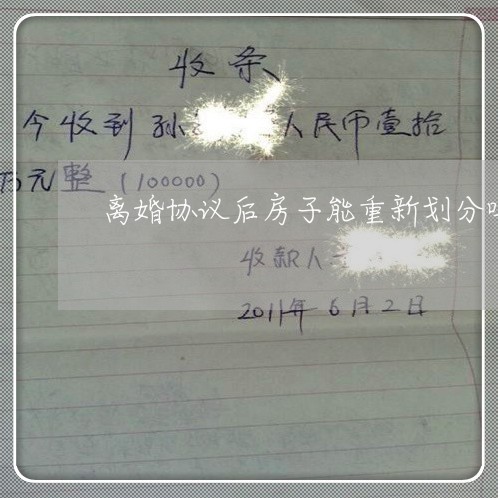 收条
今收到孙 人民币壹拾
万元整（100000）
离婚协议后房子能重新划分
收款人
2011年6月2日